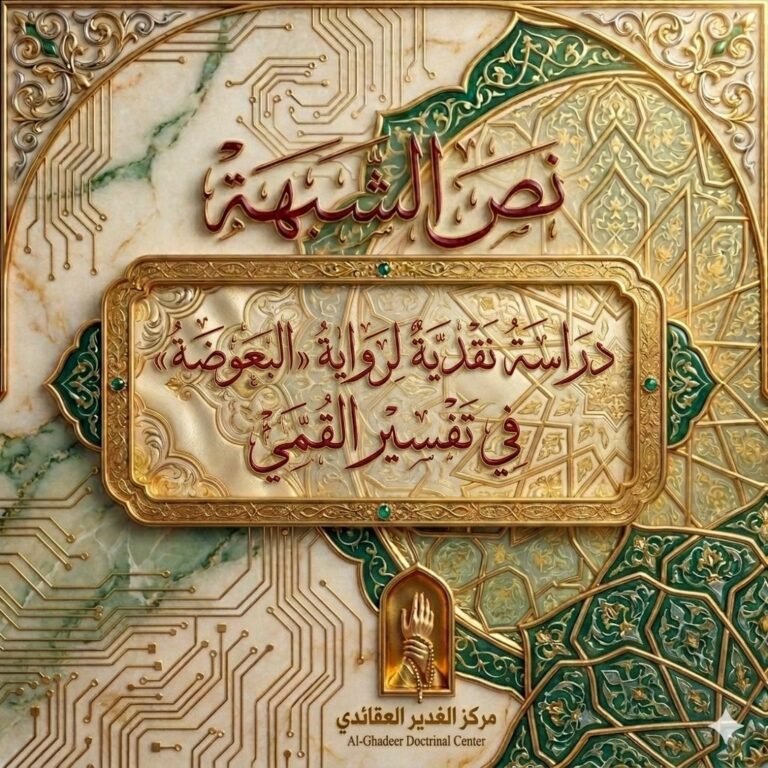 نَصَ الشُّبَهَةْ
دِرَاسَةُ نَقْدِيَّةٌ لِرِوَايَةُ «البَعَوضَةُ»
فِي تَفْسِيْرِ القُمَّيْ
مركز الغدير العقائدي
Al-Ghadeer Doctrinal Center